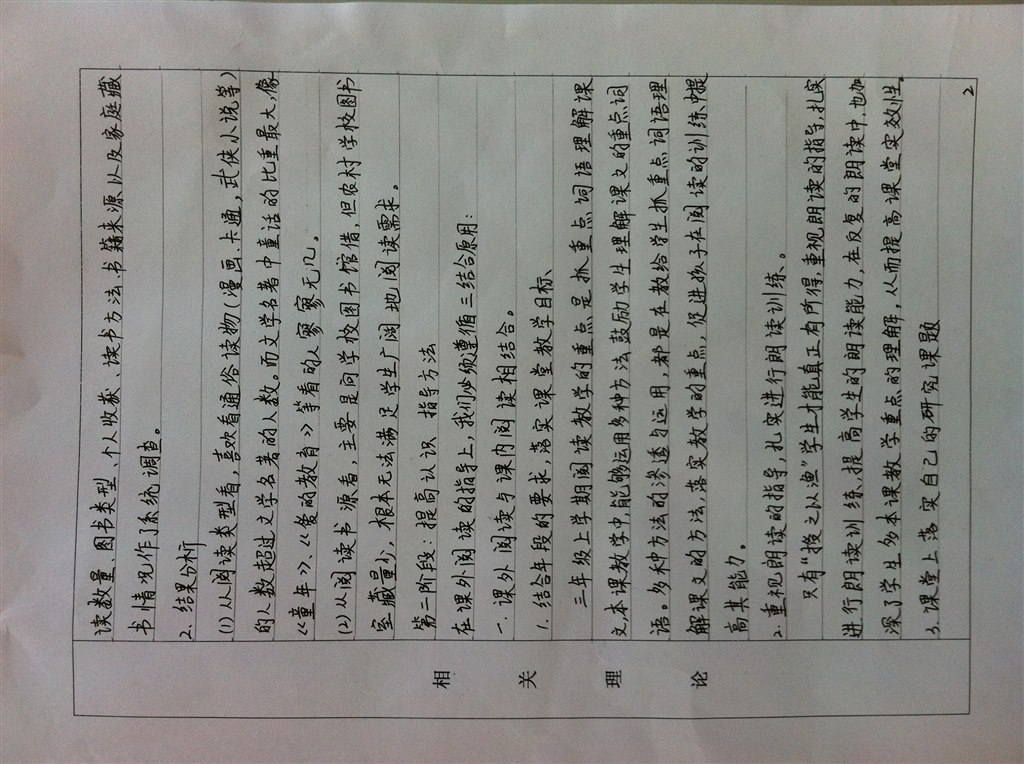 相关理论
读数量、图书类型、个人收获、读书方法、书籍来源以及家庭藏
书情况作了系统调查。
2、结果分析
(1) 从阅读类型看，喜欢看通俗读物(漫画、卡通，武侠小说等)
的人数超过文学名著的人数。而文学名著中童话的比重最大，像
《童年》、《爱的教育》等看的人寥寥无几。
(2) 从阅读书源看，主要是向学校图书馆借，但农村学校图书
室藏量少，根本无法满足学生广阔地阅读需求。
第二阶段：提高认识 指导方法
在课外阅读的指导上，我们必须遵循三结合原用：
一.课外阅读与课内阅读相结合。
1.结合年段的要求，落实课堂教学目标、
三年级上学期阅读教学的重点是抓重点词语理解课
文，本课教学中能够运用多种方法鼓励学生理解课文的重点词
语。多种方法的渗透与运用，都是在教给学生抓重点词语理
解课文的方法，落实教学的重点，促进孩子在阅读的训练中提
高其能力。
2.重视朗读的指导，扎实进行朗读训练。
只有“授之以渔”学生才能真正有所得，重视朗读的指导，扎实
进行朗读训练，提高学生的朗读能力，在反复的朗读中，也加
深了学生多本课教学重点的理解，从而提高课堂实效性。
3.课堂上落实自己的研究课题
2